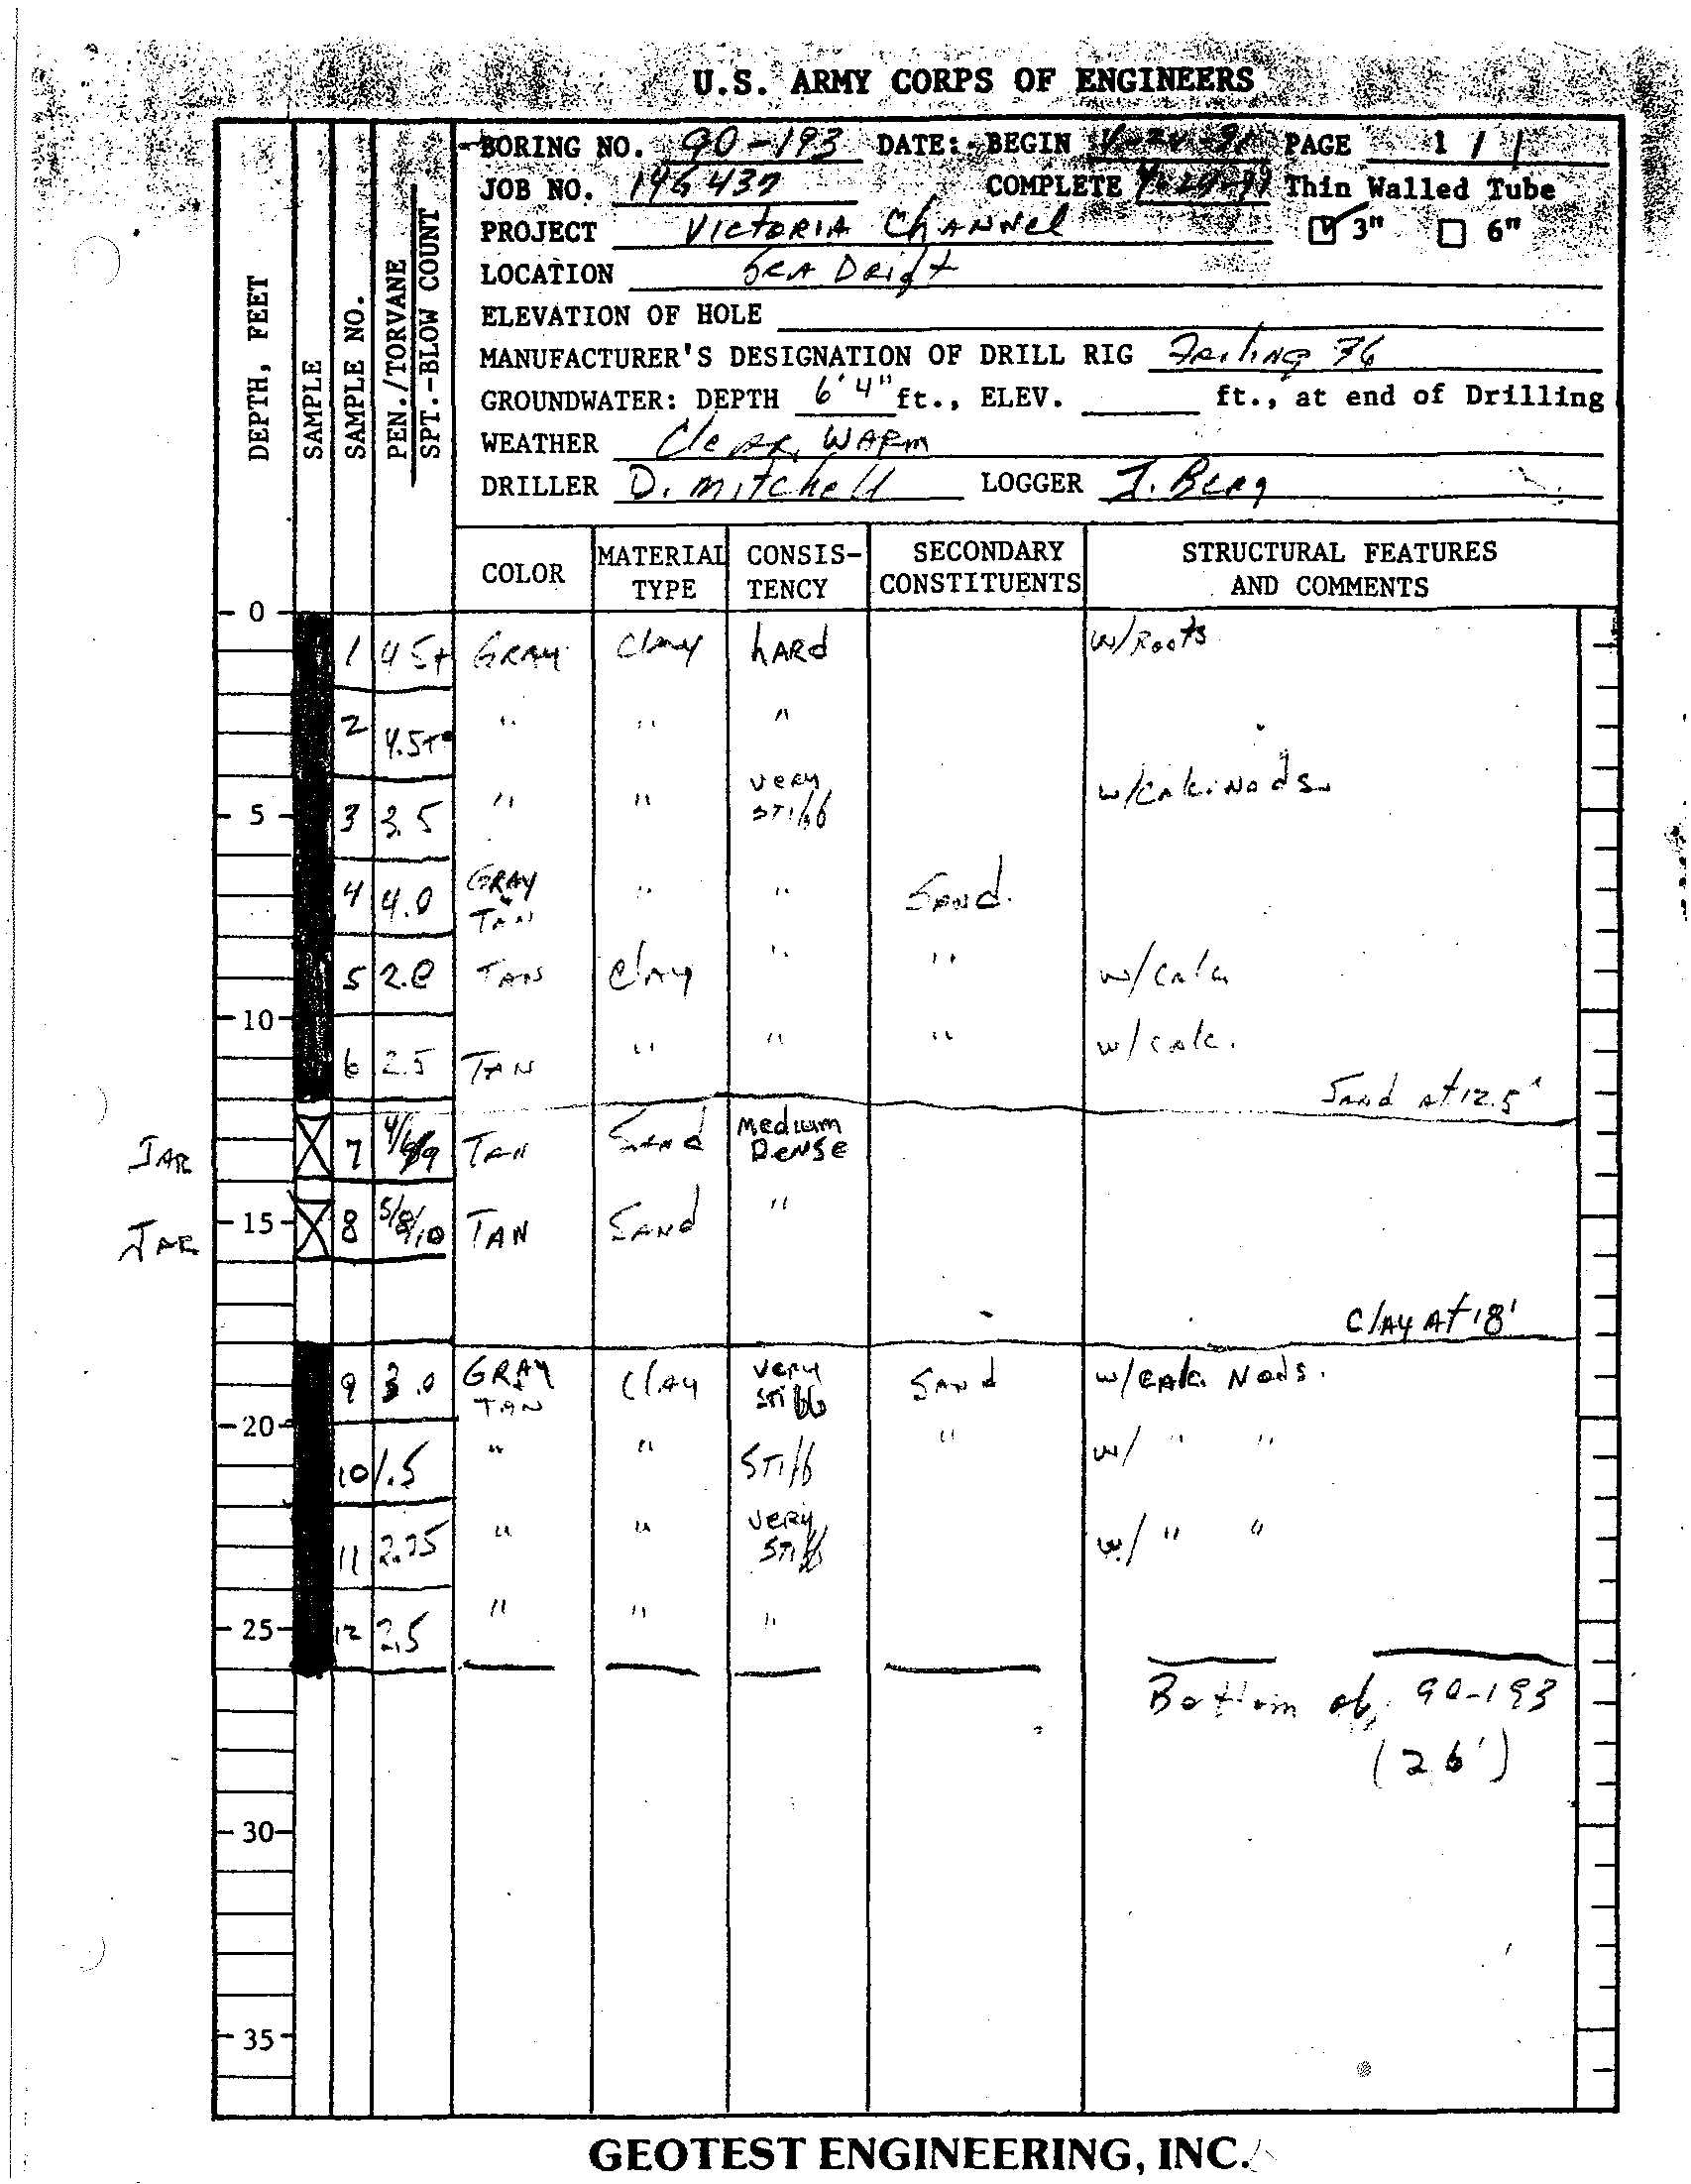 U.S. ARMY CORPS OF ENGINEERS
BORING NO. 90-193 DATE: BEGIN PAGE 1 / 1
JOB NO. COMPLETE Thin Walled Tube
PROJECT VICTORIA ChANNel 3" 6"
LOCATION SeA Drift
ELEVATION OF HOLE
MANUFACTURER'S DESIGNATION OF DRILL RIG Failing
GROUNDWATER: DEPTH 6'4" ft., ELEV. ft., at end of Drilling
WEATHER CleAR, WARm
DRILLER D. mitchell LOGGER J. Berg
DEPTH, FEET
SAMPLE
SAMPLE NO.
PEN./TORVANE
SPT.-BLOW COUNT
COLOR MATERIAL TYPE CONSIS-TENCY SECONDARY CONSTITUENTS STRUCTURAL FEATURES AND COMMENTS
0
1 4.5+ GRAY Clay hARd w/Roots
2 4.5+ " " "
5 3 3.5 " " very stiff w/calc. Nods.
4 4.0 GRAY TAN " " SANd
5 2.0 TAN ClAY " " w/calc
10
6 2.5 TAN " " " w/calc.
SANd at 12.5'
JAR 7 TAN SANd Medium DeNSe
JAR 15 8 5/8/10 TAN SANd "
ClAY At 18'
9 3.0 GRAY TAN ClAY very stiff SANd w/calc. Nods.
20
10 1.5 " " STiff " w/ " "
11 2.75 " " very STiff w/ " "
25 12 2.5 " " "
Bottom of 90-193
(26')
30
35
GEOTEST ENGINEERING, INC.